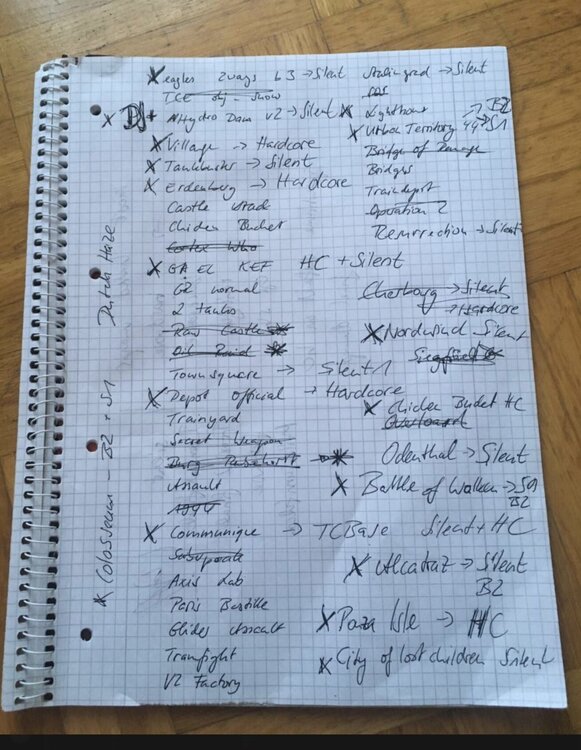 X eagles 2ways L3 → Silent
TCE obj - show
X B1+ Hydro Dam V2 → Silent
X Village → Hardcore
X Tankbuster → Silent
X Erdenberg → Hardcore
Castle
Chicken Bucket
X GA EL KEF HC + Silent
G2 normal
2 tanks
Raw Castle
Oil Raid
Townsquare → Silent 1
X Depot Official → Hardcore
Trainyard
Secret Weapon
Burg
Assault
1944
X Communique → TCBase Silent + HC
Axis Lab
Paris Bastille
Glider Assault
Tramfight
V2 Factory
Stalingrad → Silent
X Lighthouse
X Urban Territory → B2
44 → S1
Bridge of Remage
Bridges
Traindepot
Operation 2
Resurrection → Silent
Cherburg → Silent
→ Hardcore
X Nordwind Silent
X Chicken Bucket HC
Overloard
Odenthal → Silent
X Battle of Wallern →
B2
X Alcatraz → Silent
B2
X Paza Isle → HC
X City of lost children Silent
Dutch Haze
X Colosseum - B2 + S1